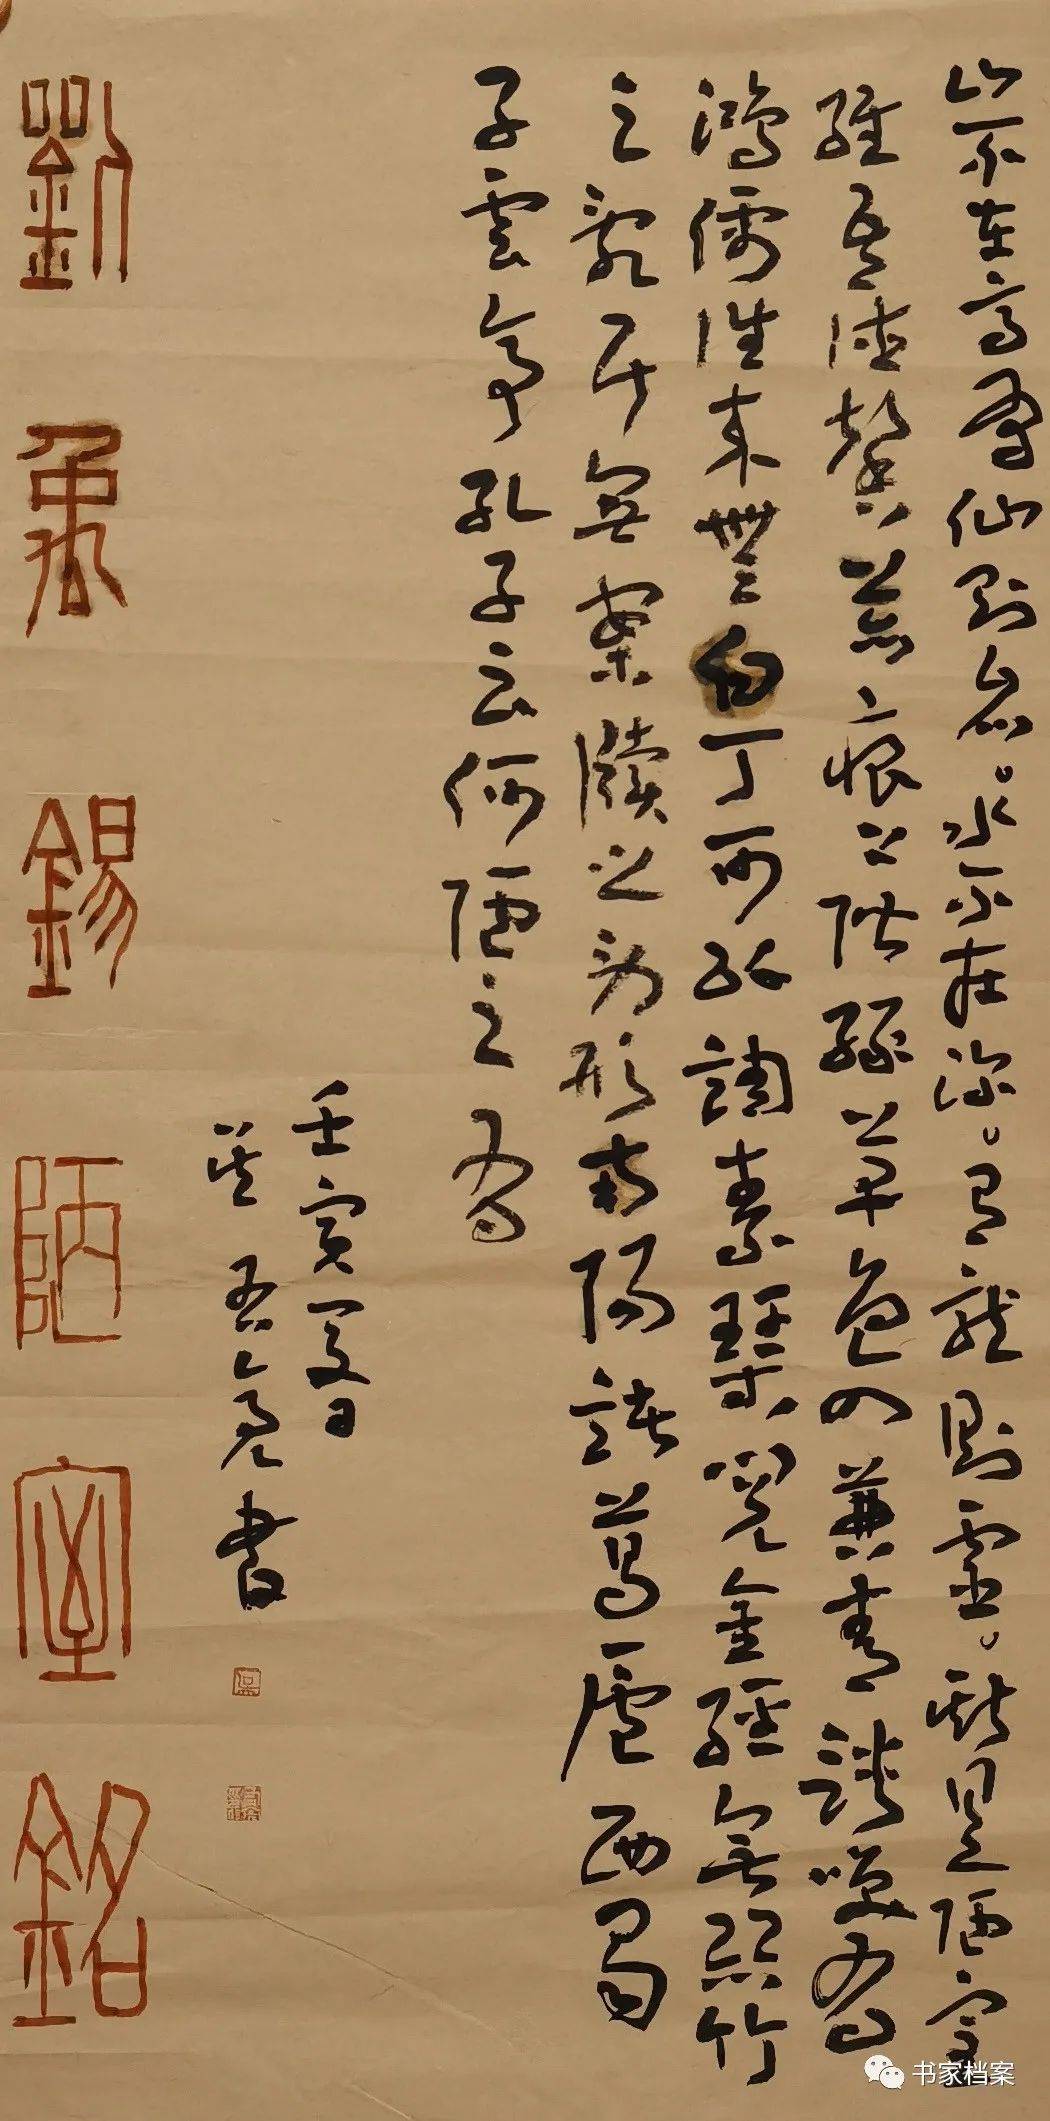 山不在高有仙則名。水不在深。有龍則靈。斯是陋室。
維吾德馨苔痕上階綠草色入蒹青談笑有
鴻儒往來無白丁可以調素琴閱金經無絲竹
之亂耳無案牘之勞形南陽諸葛廬西蜀
子雲亭孔子云何陋之有
壬寅夏日
書
劉禹錫陋室銘
书家档案